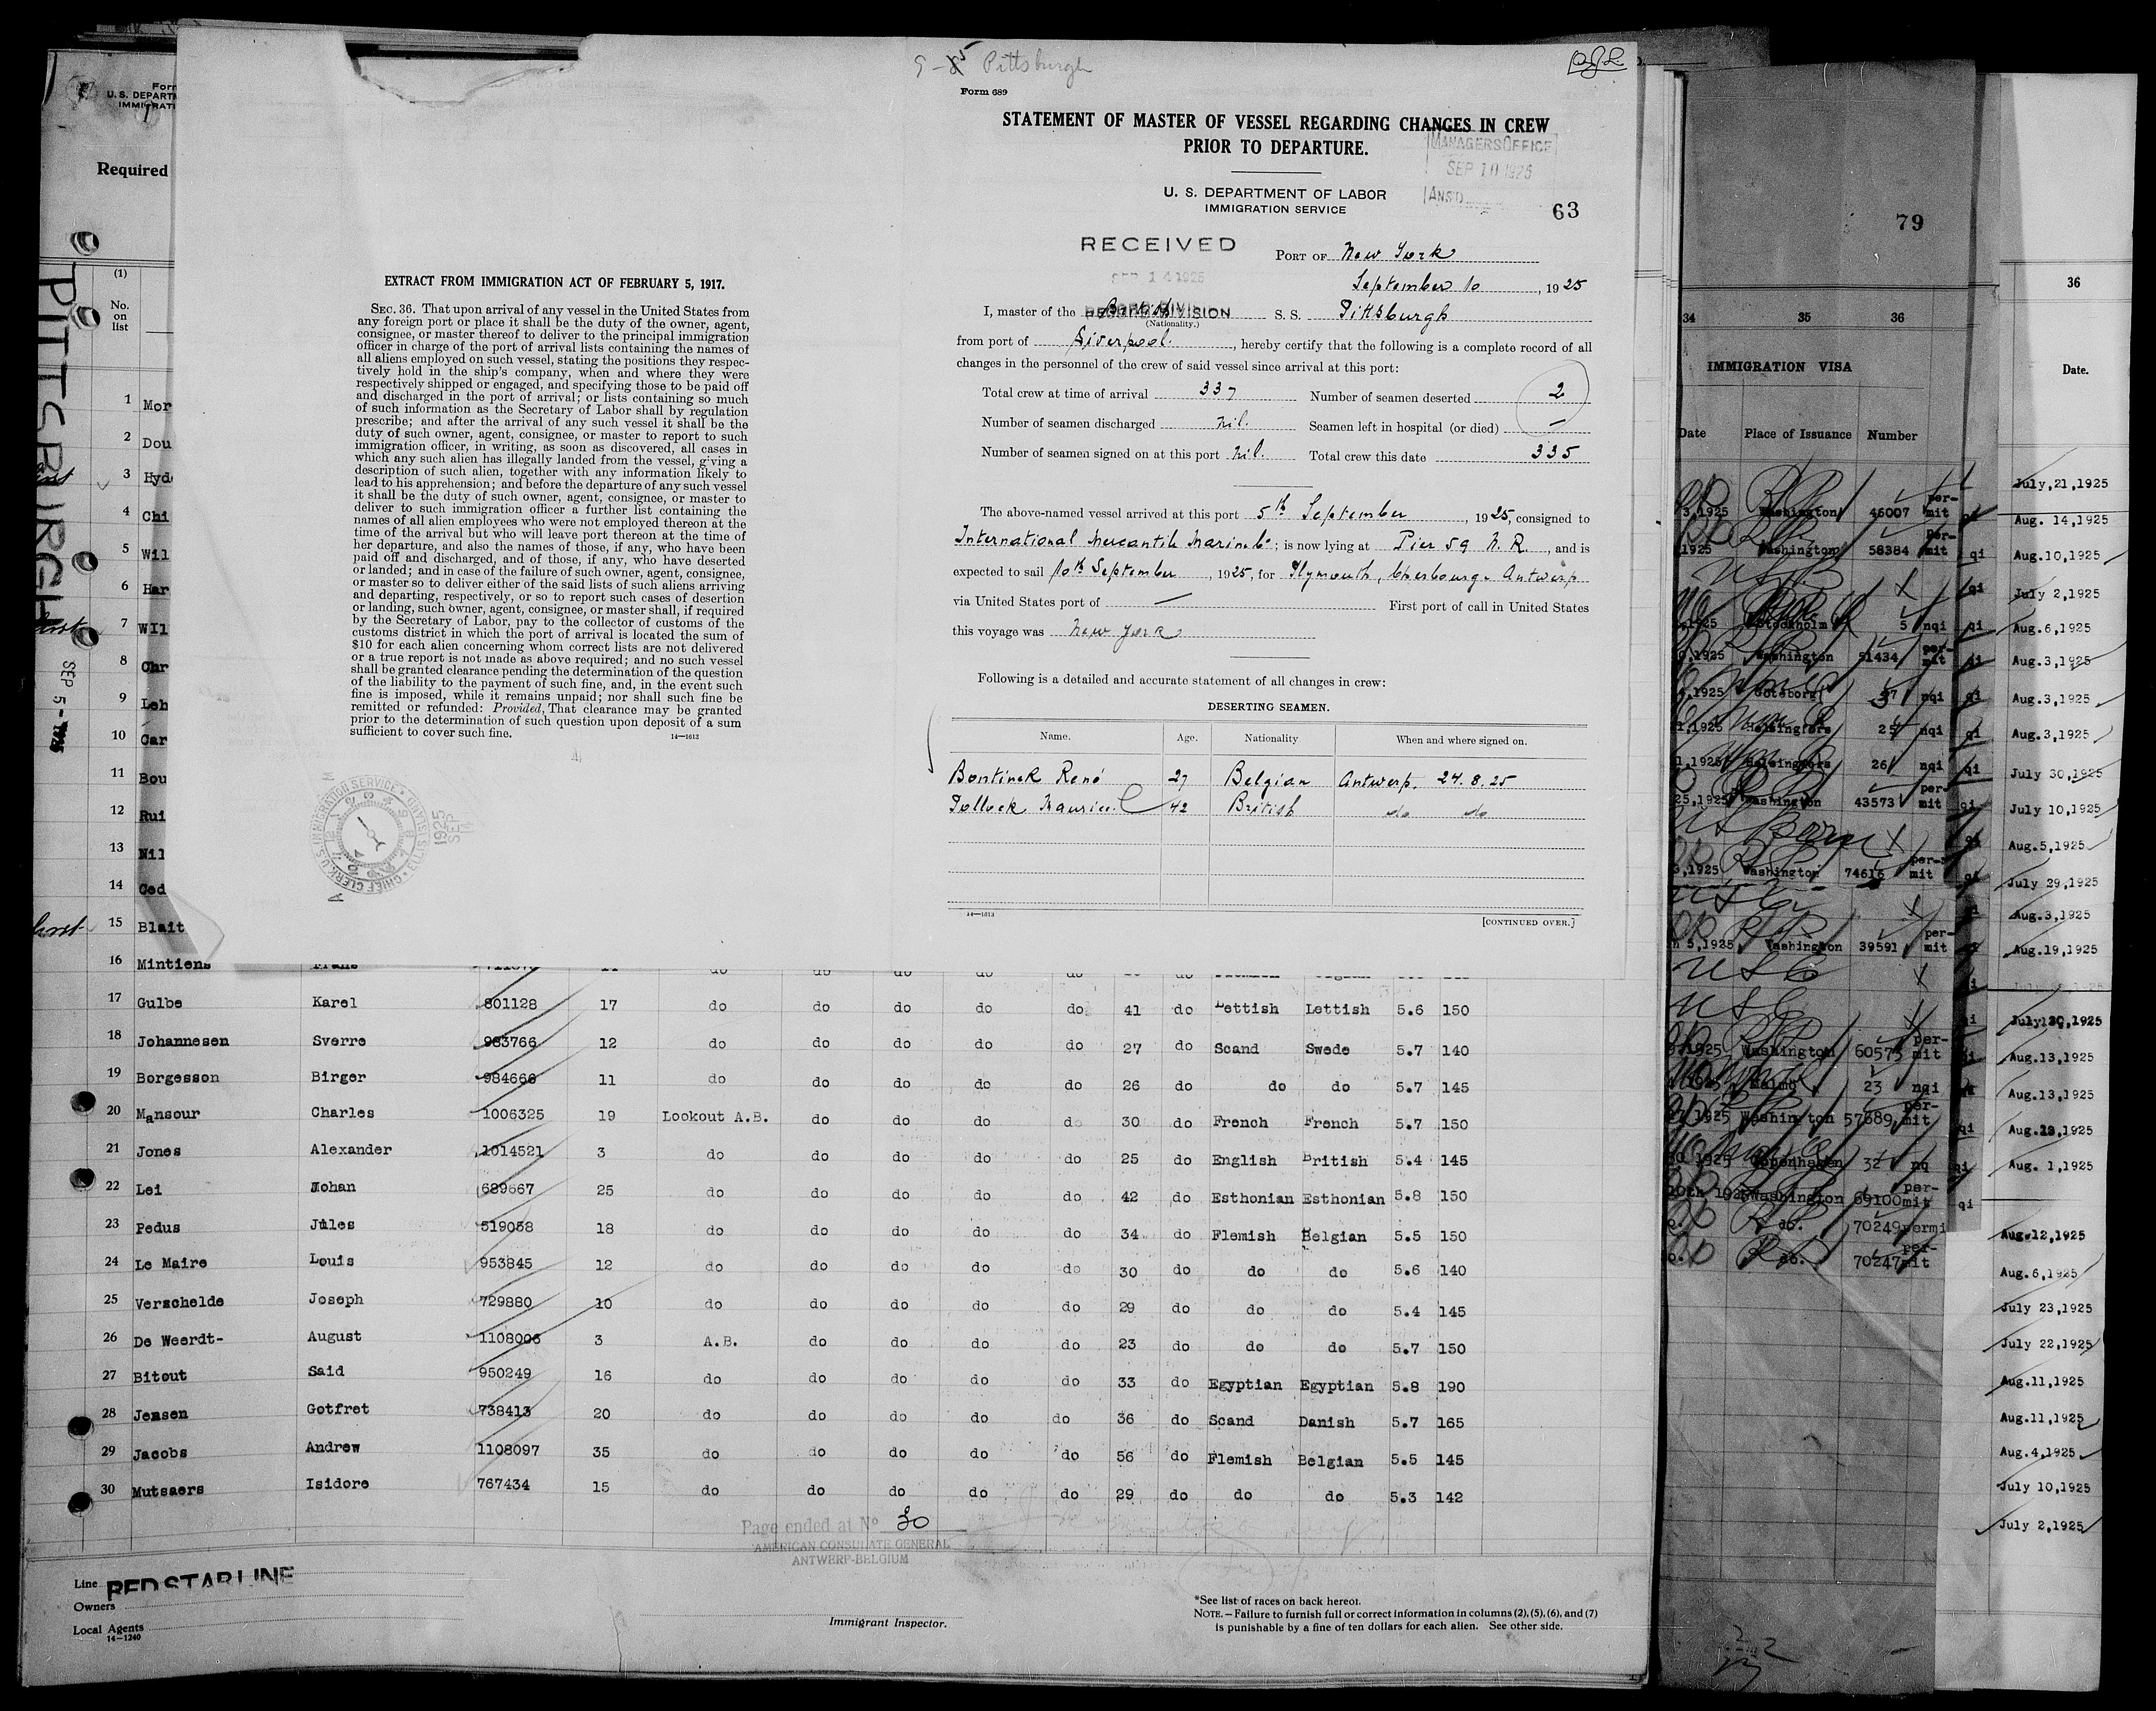 9-5 Pittsburgh
Form 689
STATEMENT OF MASTER OF VESSEL REGARDING CHANGES IN CREW
PRIOR TO DEPARTURE.
MANAGERS OFFICE
SEP 10 1925
ANS'D
U. S. DEPARTMENT OF LABOR
IMMIGRATION SERVICE
63
RECEIVED
SEP 14 1925
RECORD DIVISION
PORT OF New York
September 10, 1925
I, master of the British S. S. Pittsburgh
(Nationality.)
from port of Liverpool, hereby certify that the following is a complete record of all
changes in the personnel of the crew of said vessel since arrival at this port:
Total crew at time of arrival 337 Number of seamen deserted 2
Number of seamen discharged nil. Seamen left in hospital (or died) —
Number of seamen signed on at this port nil. Total crew this date 335
The above-named vessel arrived at this port 5th September, 1925, consigned to
International Mercantile Marine Co; is now lying at Pier 59 N. R., and is
expected to sail 10th September, 1925, for Plymouth, Cherbourg, Antwerp
via United States port of — First port of call in United States
this voyage was New York
Following is a detailed and accurate statement of all changes in crew:
DESERTING SEAMEN.
Name. Age. Nationality When and where signed on.
Bontinck René 27 Belgian Antwerp. 24.8.25
Pollock Maurice 42 British do do
14—1613
[CONTINUED OVER.]
EXTRACT FROM IMMIGRATION ACT OF FEBRUARY 5, 1917.
SEC. 36. That upon arrival of any vessel in the United States from
any foreign port or place it shall be the duty of the owner, agent,
consignee, or master thereof to deliver to the principal immigration
officer in charge of the port of arrival lists containing the names of
all aliens employed on such vessel, stating the positions they respec-
tively hold in the ship's company, when and where they were
respectively shipped or engaged, and specifying those to be paid off
and discharged in the port of arrival; or lists containing so much
of such information as the Secretary of Labor shall by regulation
prescribe; and after the arrival of any such vessel it shall be the
duty of such owner, agent, consignee, or master to report to such
immigration officer, in writing, as soon as discovered, all cases in
which any such alien has illegally landed from the vessel, giving a
description of such alien, together with any information likely to
lead to his apprehension; and before the departure of any such vessel
it shall be the duty of such owner, agent, consignee, or master to
deliver to such immigration officer a further list containing the
names of all alien employees who were not employed thereon at the
time of the arrival but who will leave port thereon at the time of
her departure, and also the names of those, if any, who have been
paid off and discharged, and of those, if any, who have deserted
or landed; and in case of the failure of such owner, agent, consignee,
or master so to deliver either of the said lists of such aliens arriving
and departing, respectively, or so to report such cases of desertion
or landing, such owner, agent, consignee, or master shall, if required
by the Secretary of Labor, pay to the collector of customs of the
customs district in which the port of arrival is located the sum of
$10 for each alien concerning whom correct lists are not delivered
or a true report is not made as above required; and no such vessel
shall be granted clearance pending the determination of the question
of the liability to the payment of such fine, and, in the event such
fine is imposed, while it remains unpaid; nor shall such fine be
remitted or refunded: Provided, That clearance may be granted
prior to the determination of such question upon deposit of a sum
sufficient to cover such fine.
14—1613
U.S. IMMIGRATION SERVICE
CHIEF CLERK
1925
SEP
Form
U. S. DEPARTM
IMMIGRATI
Required
PITTSBURGH
SEP 5-1925
(1)
No.
on
list
1 Mor
2 Dou
3 Hyd
4 Chi
5 Wil
6 Har
7 WIl
8 Chr
9 Leh
10 Car
11 Bou
12 Rui
13 Nil
14 Ged
15 Blait
16 Mintiens Frans
17 Gulbe Karel 801128 17 do do do do do 41 do Lettish Lettish 5.6 150
18 Johannesen Sverre 983766 12 do do do do do 27 do Scand Swede 5.7 140
19 Borgesson Birger 984666 11 do do do do do 26 do do do 5.7 145
20 Mansour Charles 1006325 19 Lookout A.B. do do do do 30 do French French 5.7 150
21 Jones Alexander 1014521 3 do do do do do 25 do English British 5.4 145
22 Lei Johan 689667 25 do do do do do 42 do Esthonian Esthonian 5.8 150
23 Pedus Jules 519058 18 do do do do do 34 do Flemish Belgian 5.5 150
24 Le Maire Louis 953845 12 do do do do do 30 do do do 5.6 140
25 Verschelde Joseph 729880 10 do do do do do 29 do do do 5.4 145
26 De Weerdt- August 1108006 3 A.B. do do do do 23 do do do 5.7 150
27 Bitout Said 950249 16 do do do do do 33 do Egyptian Egyptian 5.8 190
28 Jensen Gotfret 738413 20 do do do do do 36 do Scand Danish 5.7 165
29 Jacobs Andrew 1108097 35 do do do do do 56 do Flemish Belgian 5.5 145
30 Mutsaers Isidore 767434 15 do do do do do 29 do do do 5.3 142
Page ended at No 30
AMERICAN CONSULATE GENERAL
ANTWERP-BELGIUM
Line RED STAR LINE
Owners
Local Agents
14—1240
Immigrant Inspector.
*See list of races on back hereof.
NOTE.—Failure to furnish full or correct information in columns (2), (5), (6), and (7)
is punishable by a fine of ten dollars for each alien. See other side.
79
34 35 36
IMMIGRATION VISA
Date Place of Issuance Number
3,1925 Washington 46007 per-mit
1925 Washington 58384 per-mit qi
qi
1925 Stockholm 5 nqi qi
1925 Washington 51434 per-mit qi
1925 Goteborg 37 nqi qi
1,1925 Helsingfors 25 nqi qi
1,1925 Helsingfors 26 nqi qi
25,1925 Washington 43573 per-mit qi
US born
1925 Washington 74616 per-mit qi
5,1925 Washington 39591 per-mit
1925 Washington 60573 per-mit
Malmo 23 nqi
1925 Washington 57689 per-mit qi
1925 Copenhagen 32 nq qi
10th 1925 Washington 69100 per-mit qi
do. 70249 permi
do. 70247 per-mit
36
Date.
July,21,1925
Aug. 14,1925
Aug.10,1925
July 2,1925
Aug.6,1925
Aug.3,1925
Aug.3,1925
Aug.3,1925
July 30,1925
July 10,1925
Aug.5,1925
July 29,1925
Aug.3,1925
Aug.19,1925
July 30,1925
Aug.13,1925
Aug.13,1925
Aug.18,1925
Aug. 1,1925
Aug.12,1925
Aug.6,1925
July 23,1925
July 22,1925
Aug.11,1925
Aug.11,1925
Aug.4,1925
July 10,1925
July 2,1925